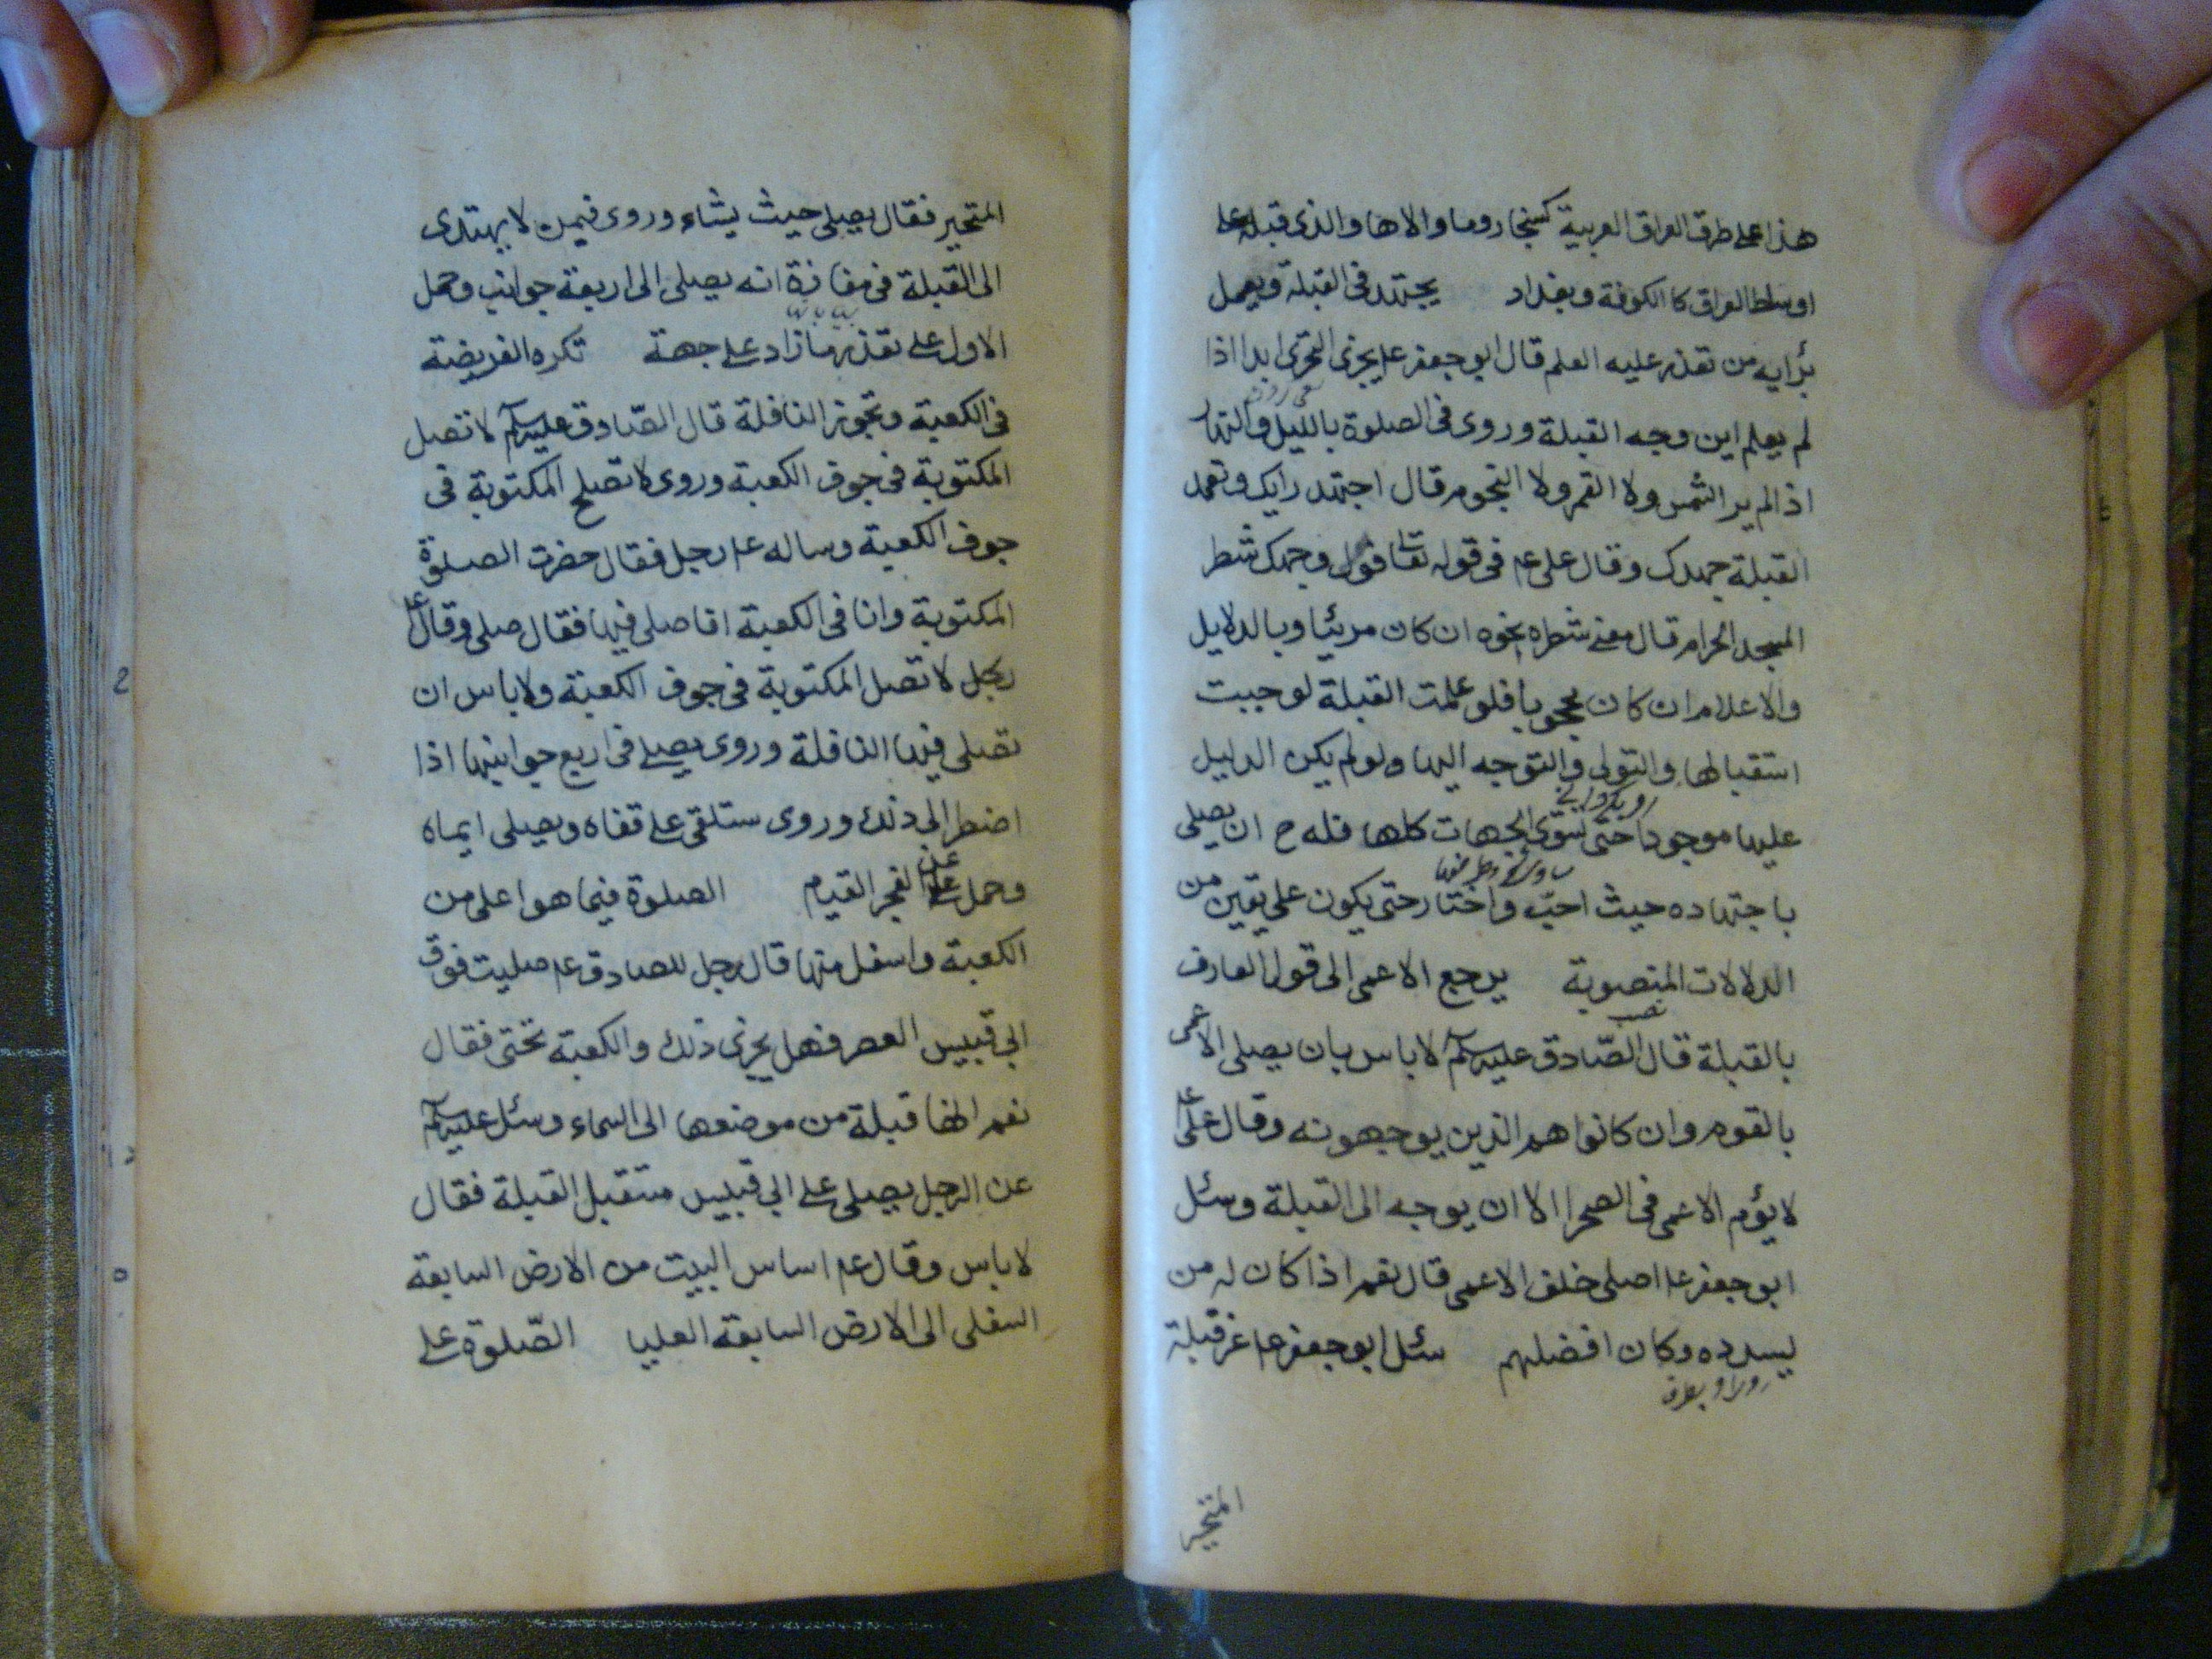 هذا على طرق العراق العربية كسنجار وما والاها والذي قبله على
اوساط العراق كالكوفة وبغداد يجتهد في القبلة ويعمل
برأيه من تعذر عليه العلم قال ابو جعفر ع يجزي التحري ابدا اذا
لم يعلم اين وجه القبلة وروى في الصلوة بالليل والنهار
اذا لم ير الشمس ولا القمر ولا النجوم قال اجتهد رايك وتعمد
القبلة جهدك وقال على ع في قوله تعا فول وجهك شطر
المسجد الحرام قال معنى شطره نحوه ان كان مرئيا وبالدلايل
والاعلام ان كان محجوبا فلو علمت القبلة لوجبت
استقبالها والتولى والتوجه اليها ولو لم يكن الدليل
عليها موجودا حتى تستوى الجهات كلها فله ح ان يصلى
باجتهاده حيث احب واختار حتى يكون على يقين من
الدلالات المنصوبة يرجع الاعمى الى قول العارف
بالقبلة قال الصادق عليه السلم لا باس بان يصلى الاعمى
بالقوم وان كانوا هم الذين يوجهونه وقال على ع
لا يؤم الاعمى في الصحرا الا ان يوجه الى القبلة وسئل
ابو جعفر ع اصلى خلف الاعمى قال نعم اذا كان له من
يسدده وكان افضلهم سئل ابو جعفر ع عن قبلة
المتحير
المتحير فقال يصلى حيث يشاء وروى فيمن لا يهتدى
الى القبلة في مفازة انه يصلى الى اربعة جوانب وحمل
الاول على تعذر ما زاد على جهة تكره الفريضة
في الكعبة وتجوز النافلة قال الصادق عليه السلم لا تصل
المكتوبة في جوف الكعبة وروى لا تصلح المكتوبة في
جوف الكعبة وساله ع رجل فقال حضرت الصلوة
المكتوبة وانا في الكعبة افاصلى فيها فقال صلى وقال ع
رجل لا تصل المكتوبة في جوف الكعبة ولا باس ان
تصلى فيها النافلة وروى يصلى في اربع جوانبها اذا
اضطر الى ذلك وروى ستلقى على قفاه ويصلى ايماء
وحمل على العجز عن القيام الصلوة فيما هو اعلى من
الكعبة واسفل منها قال رجل للصادق ع صليت فوق
ابي قبيس العصر فهل يجزى ذلك والكعبة تحتى فقال
نعم انها قبلة من موضعها الى السماء وسئل عليه السلم
عن الرجل يصلى على ابي قبيس مستقبل القبلة فقال
لا باس وقال ع اساس البيت من الارض السابعة
السفلى الى الارض السابعة العليا الصلوة على